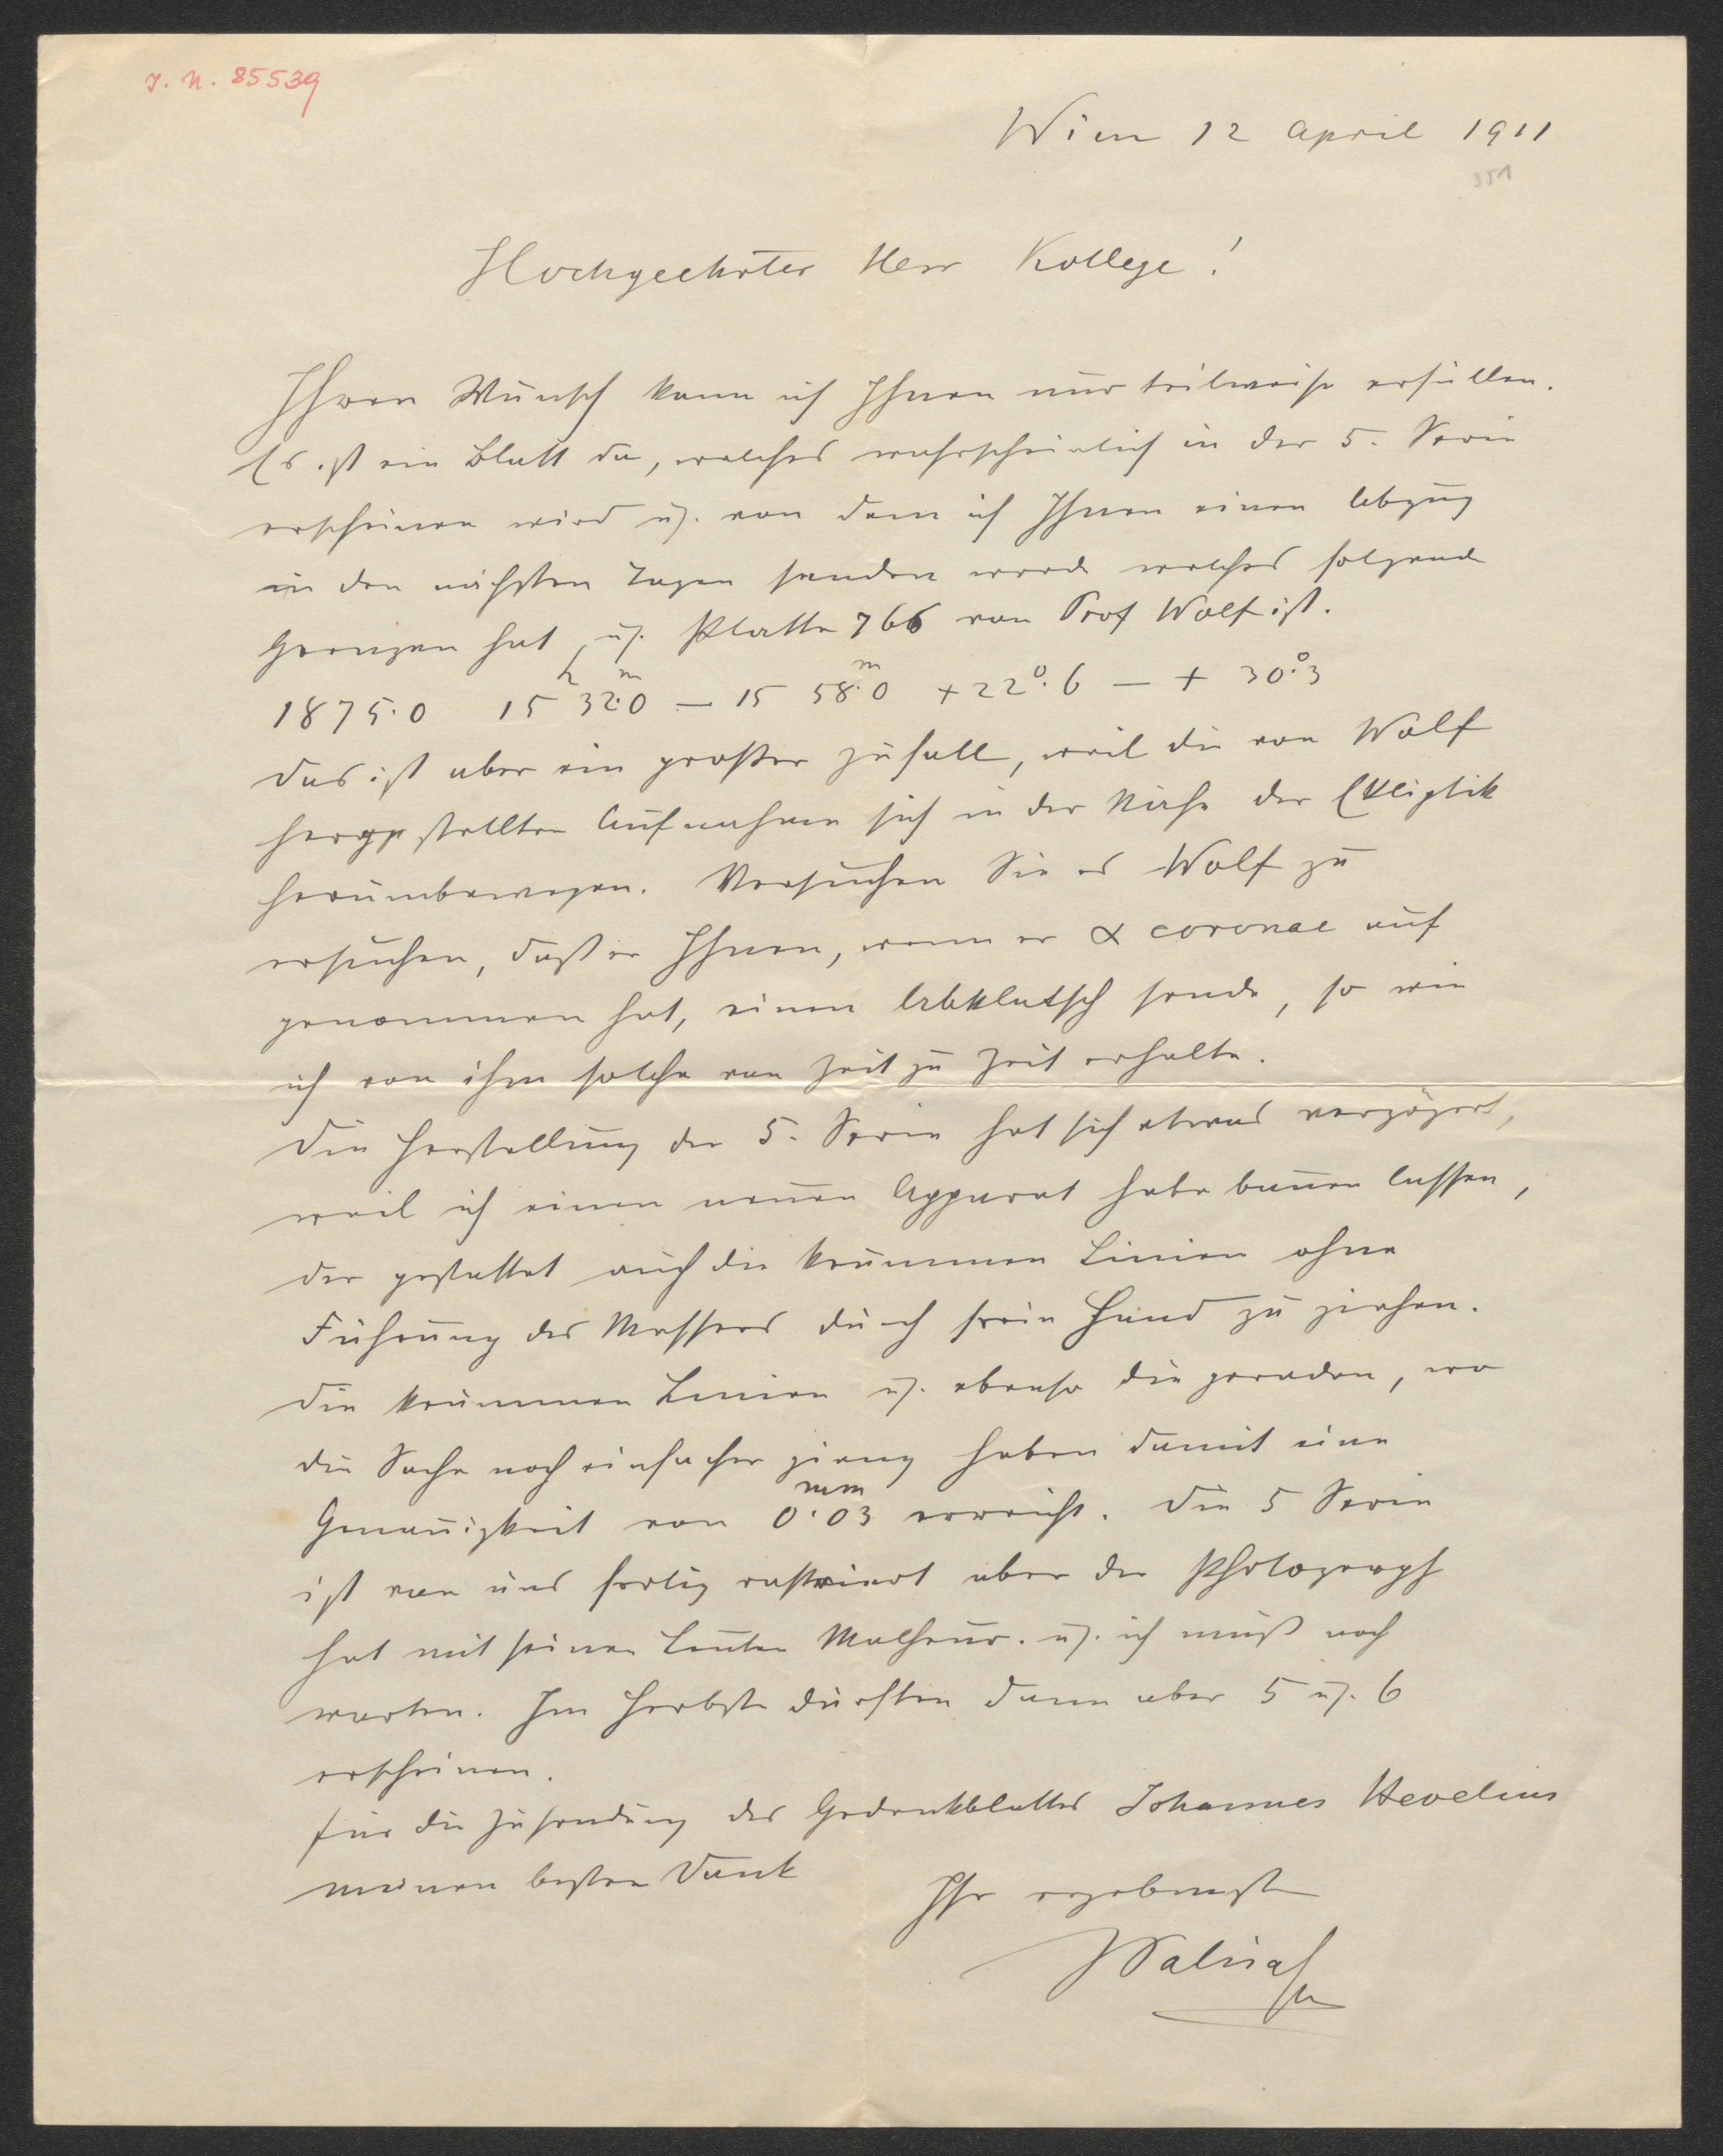 J. N. 85539
Wien 12 April 1911
351
Hochgeehrter Herr Kollege!
Ihren Wunsch kann ich Ihnen nur teilweise erfüllen.
Es ist ein Blatt da, welches wahrscheinlich in der 5. Serie
erscheinen wird u. von dem ich Ihnen einen Abzug
in den nächsten Tagen senden werde welches folgende
Grenzen hat u. Platte 766 von Prof Wolf ist.
1875.0 15h 32m.0 — 15 58m.0 + 22°.6 — + 30°.3
Das ist aber ein großer Zufall, weil die von Wolf
hergestellten Aufnahmen sich in der Nähe der Ekliptik
herumbewegen. Versuchen Sie es Wolf zu
ersuchen, daß er Ihnen, wenn er α coronae auf
genommen hat, einen Abklatsch sende, so wie
ich von ihm solche von Zeit zu Zeit erhalte.
Die Herstellung der 5. Serie hat sich etwas verzögert,
weil ich einen neuen Apparat habe bauen lassen,
der gestattet auch die krummen Linien ohne
Führung des Messers durch freie Hand zu ziehen.
Die krummen Linien u. ebenso die geraden, wo
die Sache noch einfacher gieng haben damit eine
Genauigkeit von 0.mm03 erreicht. Die 5 Serie
ist von uns fertig rastriert aber der Photograph
hat mit seinen Leuten Malheur. u. ich muß noch
warten. Im Herbste dürften dann aber 5 u. 6
erscheinen.
Für die Zusendung des Gedenkblattes Johannes Hevelius
meinen besten Dank
Ihr ergebenster
JPalisa